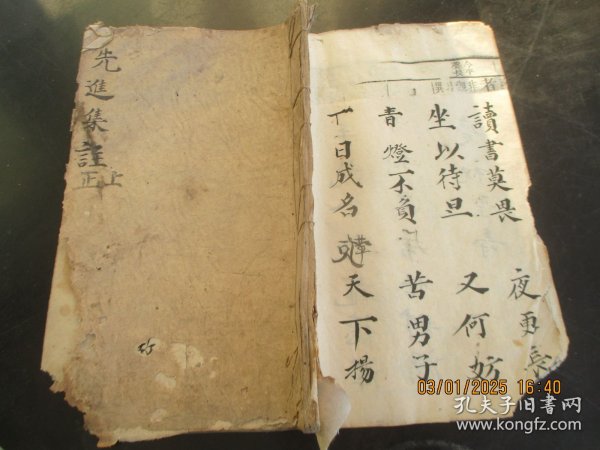 先進集註
正上
讀書莫畏夜更長
坐以待旦又何妨
青燈不負苦男子
日成名天下揚
03/01/2025 16:40
孔夫子旧書网
www.kongfz.com